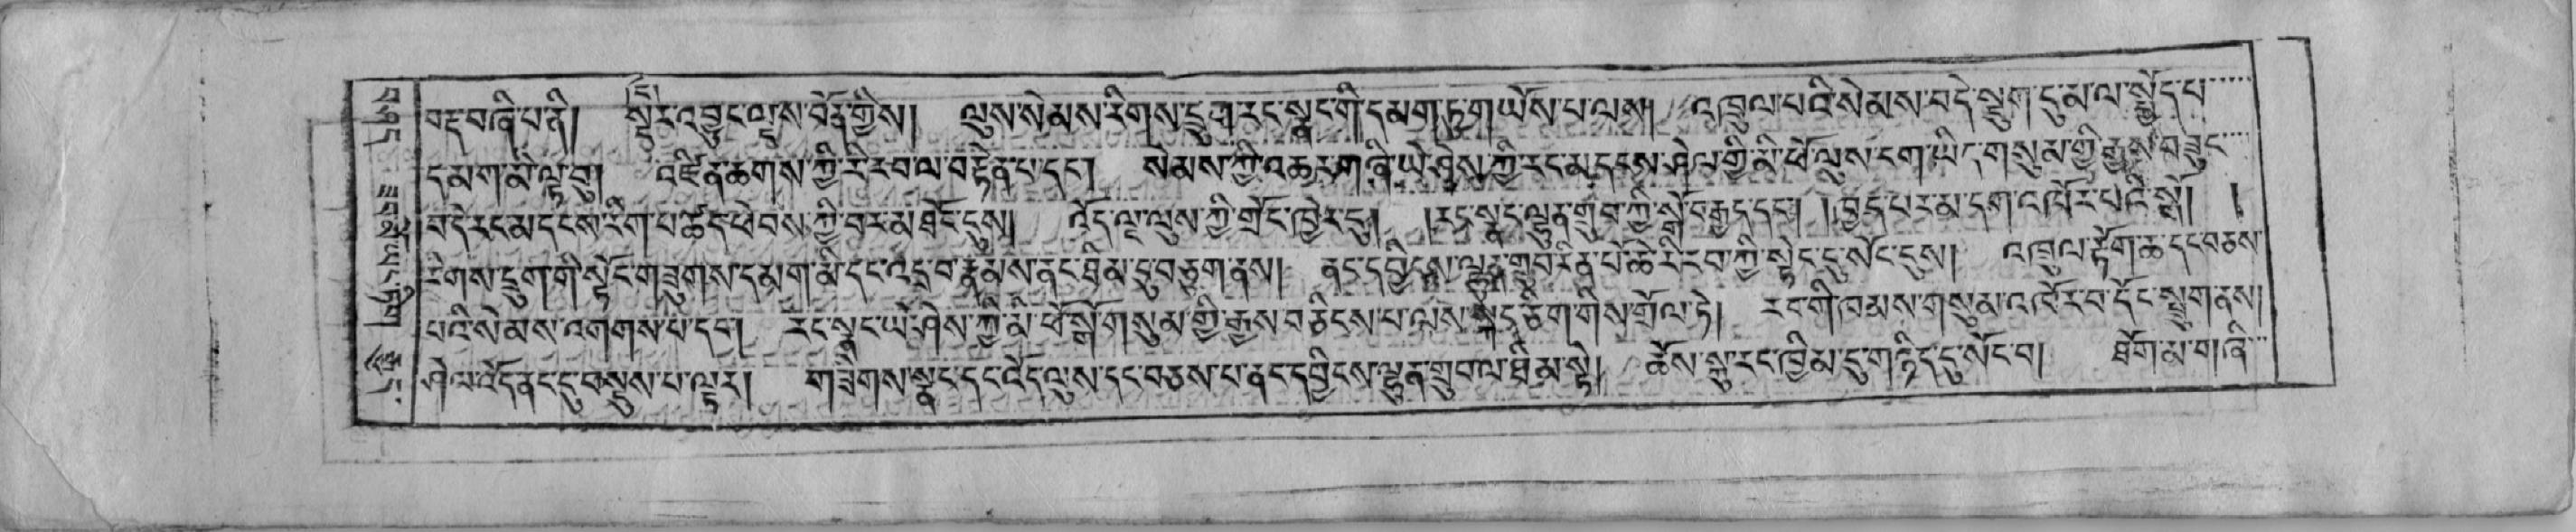 བརྡ་བཞི་པ་ནི། སྔར་འབྱུང་ལྔས་བོན་གྱིས། ལུས་སེམས་རིགས་དྲུག་རང་སྣང་གི་དམག་ཏུ་གཡོས་པ་ལས། འཁྲུལ་པའི་སེམས་བདེ་སྡུག་དུ་མ་ལ་སྤྱོད་པ
དམག་མི་ལྟ་བུ། འཛིན་ཆགས་ཀྱི་རི་རབ་ལ་བརྟེན་པ་དང༌། སེམས་ཀྱི་འཆར་གཞི་ཡེ་ཤེས་ཀྱི་རང་མདངས་ཤེལ་གྱི་མི་ཕོ་ལུས་ངག་ཡིད་གསུམ་གྱི་རྒྱས་བཟུང
བདེ་རང་མདངས་རིག་པ་ཚོད་ཕེབས་ཀྱི་བར་མ་ཐོང་དུས། འོད་ལྔ་ལུས་ཀྱི་གྲོང་ཁྱེར་དུ། །རང་སྣང་ལྷུན་གྲུབ་ཀྱི་སྒོ་བརྒྱད་དང༌། །བྱང་པར་མ་དག་འཁོར་བའི་སྒོ། །
རིགས་དྲུག་གི་སྟོང་གཟུགས་དམག་མི་དང་འདྲ་བ་རྣམས་ནང་ཐིམ་དུ་བཅུག་ནས། ནང་དབྱིངས་ལྷུན་གྲུབ་རིན་པོ་ཆེ་རི་རབ་ཀྱི་སྟེང་དུ་སོང་དུས། འཁྲུལ་རྟོག་ཆ་དང་བཅས
པའི་སེམས་འགགས་པ་དང༌། རང་སྣང་ཡེ་ཤེས་ཀྱི་མི་ཕོ་སྒོ་གསུམ་གྱི་རྒྱས་བཅིངས་པ་ལས་སྐད་ཅིག་གིས་གྲོལ་ཏེ། རང་གི་ཁམས་གསུམ་འཁོར་བ་དོང་སྤྲུགས་ནས།
ཤེལ་འོད་ནང་དུ་བསྡུས་པ་ལྟར། གཟུགས་སྣང་དང་འོད་ལུས་དང་བཅས་པ་ནང་དབྱིངས་ལྷུན་གྲུབ་ལ་ཐིམ་སྟེ། ཆོས་སྐུ་རང་ཁྱིམ་དུ་གཉིད་དུ་སོང་བ། ཐོག་མ་གཞི